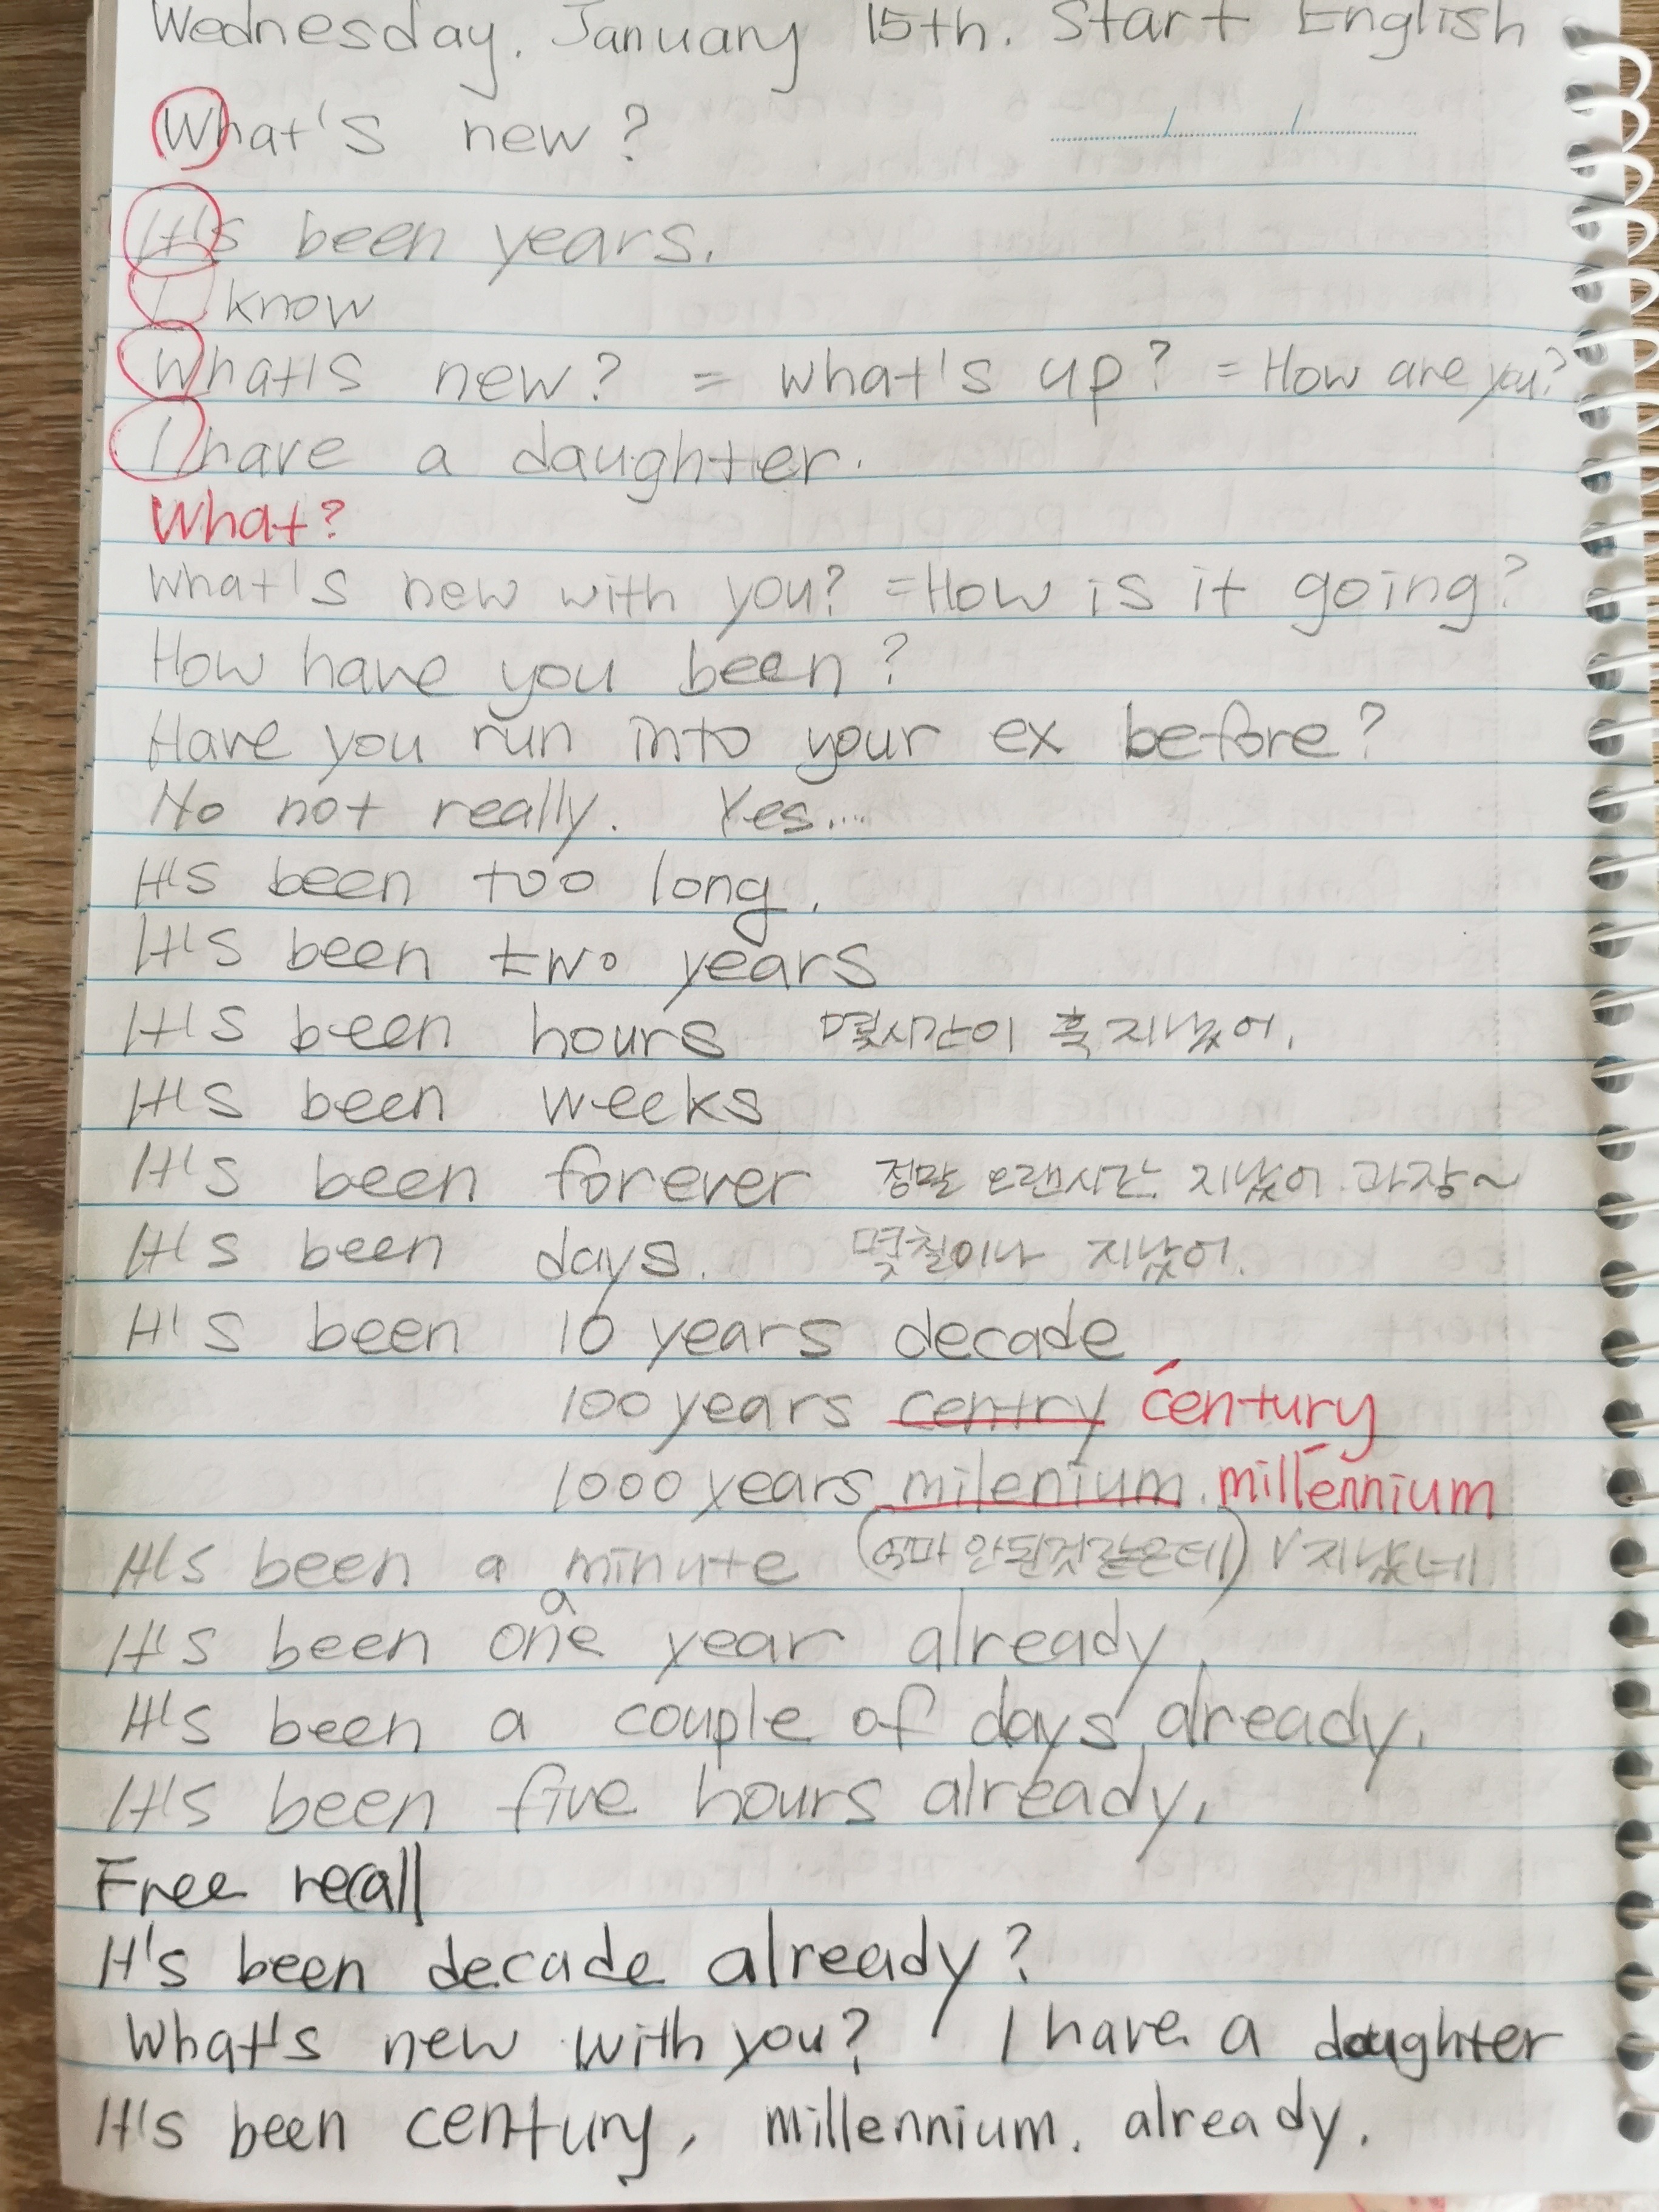 Wednesday. January 15th. Start English
What's new?
It's been years.
I know
What's new? = what's up? = How are you?
I have a daughter.
What?
What's new with you? = How is it going?
How have you been?
Have you run into your ex before?
No not really. Yes....
It's been too long.
It's been two years
It's been hours 몇시간이 훅 지났어.
It's been weeks
It's been forever 정말 오랜시간 지났어 과장~
It's been days. 몇칠이나 지났어.
It's been 10 years decade
100 years centry century
1000 years milenium. millennium
It's been a minute (얼마 안된것같은데) V지났네
a
It's been one year already.
It's been a couple of days already.
It's been five hours already.
Free recall
It's been decade already?
What's new with you? I have a daughter
It's been century, millennium. already.